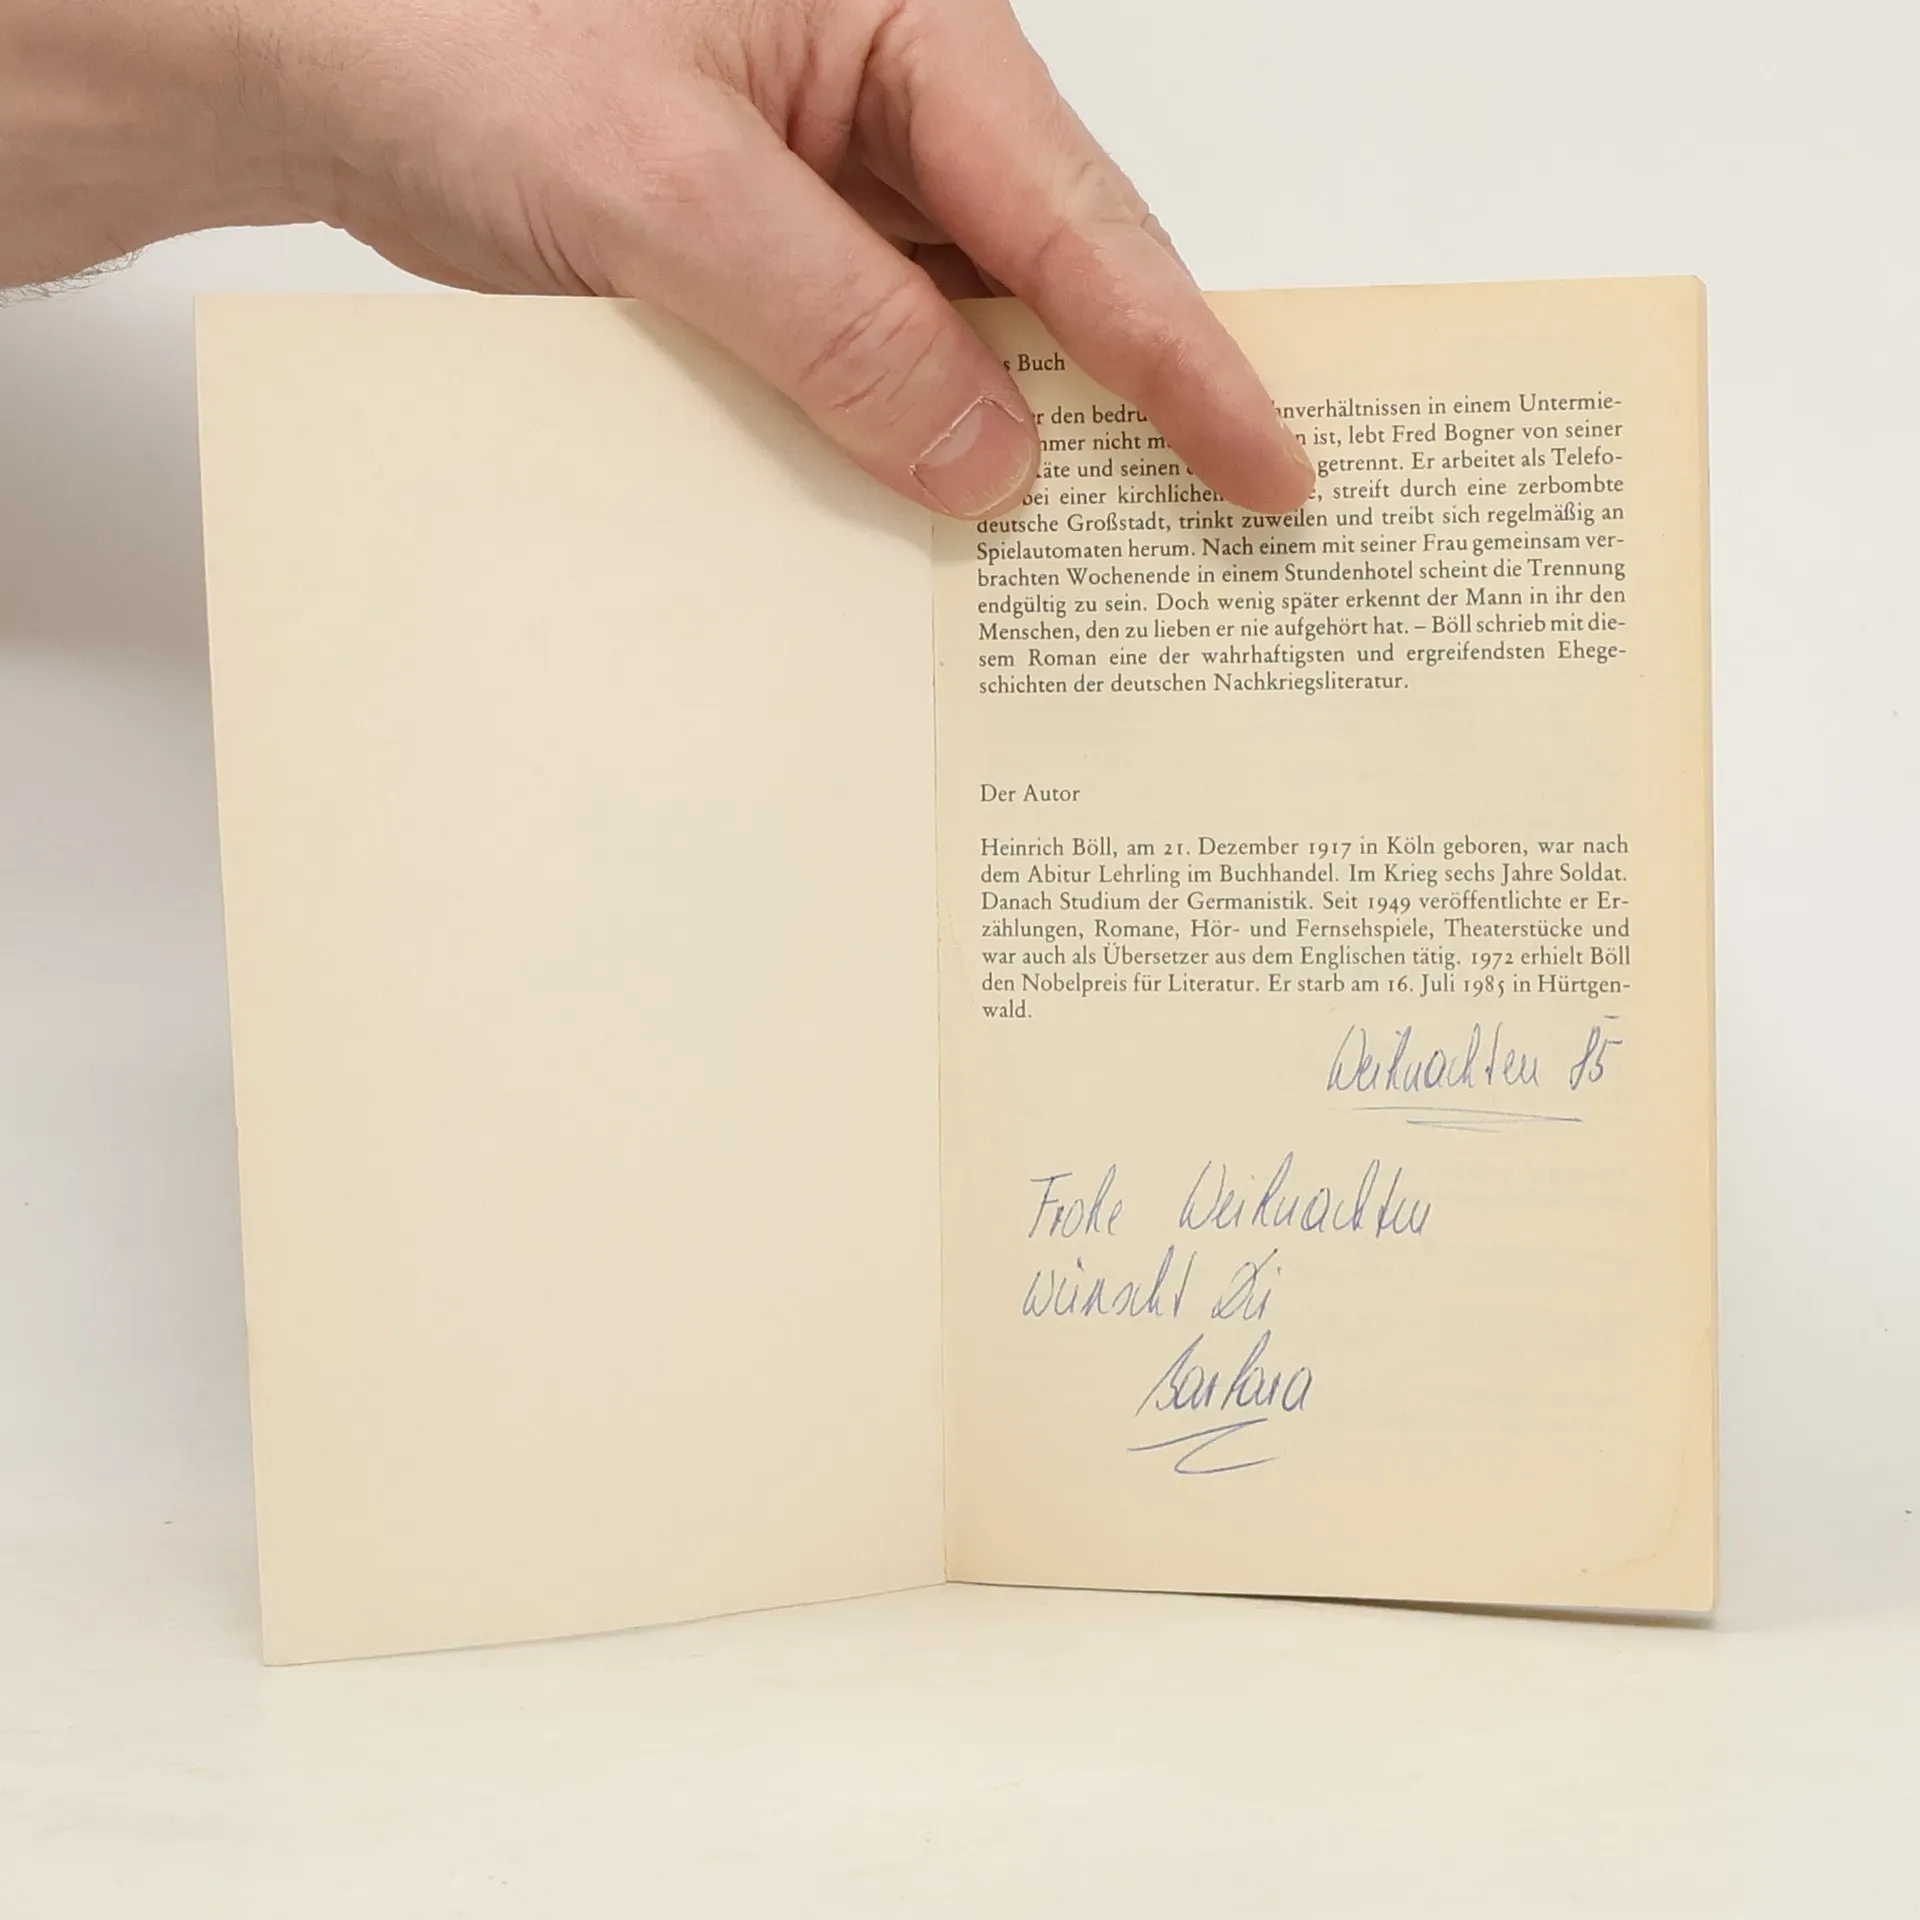 s Buch
r den bedru nverhältnissen in einem Untermie-
mmer nicht m n ist, lebt Fred Bogner von seiner
äte und seinen getrennt. Er arbeitet als Telefo-
bei einer kirchlichen e, streift durch eine zerbombte
deutsche Großstadt, trinkt zuweilen und treibt sich regelmäßig an
Spielautomaten herum. Nach einem mit seiner Frau gemeinsam ver-
brachten Wochenende in einem Stundenhotel scheint die Trennung
endgültig zu sein. Doch wenig später erkennt der Mann in ihr den
Menschen, den zu lieben er nie aufgehört hat. – Böll schrieb mit die-
sem Roman eine der wahrhaftigsten und ergreifendsten Ehege-
schichten der deutschen Nachkriegsliteratur.
Der Autor
Heinrich Böll, am 21. Dezember 1917 in Köln geboren, war nach
dem Abitur Lehrling im Buchhandel. Im Krieg sechs Jahre Soldat.
Danach Studium der Germanistik. Seit 1949 veröffentlichte er Er-
zählungen, Romane, Hör- und Fernsehspiele, Theaterstücke und
war auch als Übersetzer aus dem Englischen tätig. 1972 erhielt Böll
den Nobelpreis für Literatur. Er starb am 16. Juli 1985 in Hürtgen-
wald.
Weihnachten 85
Frohe Weihnachten
wünscht Dir
Barbara